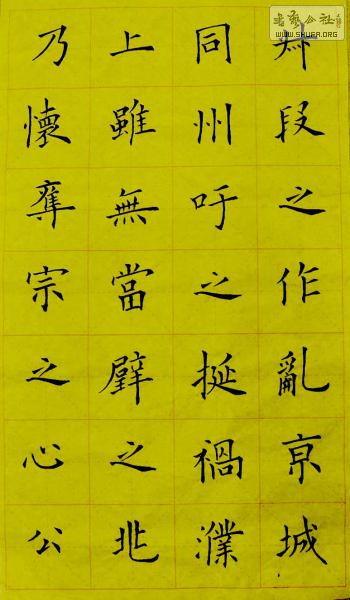 段之作亂京城
同州吁之挻禍濮
上雖無當璧之兆
乃懷奪宗之心公
书艺公社
WWW.SHUFA.ORG